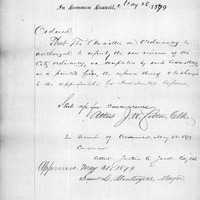 In Common Council, May 28, 1879
Ordered,
That the Committee on Ordinances be
authorized to reprint the new revision of the
City Ordinances, as completed by said Committee
in a printed form, the expense thereof to be charged
to the appropriation for Incidental Expenses
Sent up for concurrence
Attest J. W. Cotton Clk
In Board of Aldermen May 28, 1879
Concurred
Attest City Clk
Approved May 31, 1879
Saml L. Montague Mayor